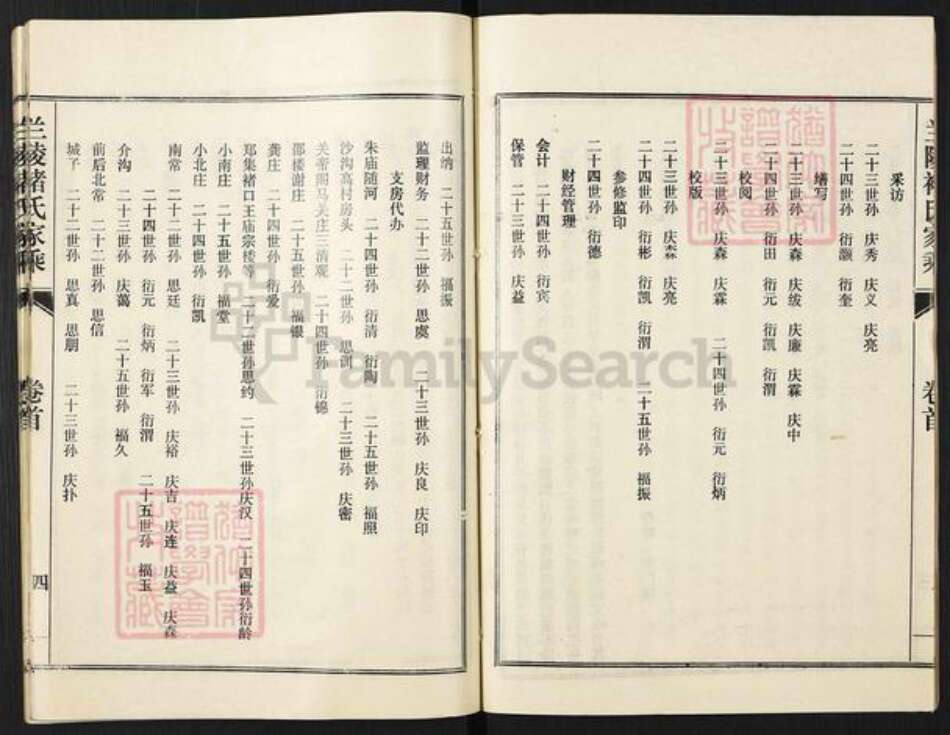 兰陵褚氏家乘
卷首
采访
二十三世孙 庆秀 庆义 庆亮
二十四世孙 衍灏 衍奎
缮写
二十三世孙 庆森 庆绂 庆廉 庆霖 庆中
二十四世孙 衍田 衍元 衍凯 衍渭
校阅
二十三世孙 庆森 庆霖 二十四世孙 衍元 衍炳
校版
二十三世孙 庆森 庆亮
二十四世孙 衍彬 衍凯 衍渭 二十五世孙 福振
参修监印
二十四世孙 衍德
财经管理
会计 二十四世孙 衍宾
保管 二十三世孙 庆益
出纳 二十五世孙 福振
监理财务 二十二世孙 思虞 二十三世孙 庆良 庆印
支房代办
朱庙随河 二十四世孙 衍清 衍陶 二十五世孙 福照
沙沟高村房头 二十二世孙 思训 二十三世孙 庆密
关帝阁马夫庄三清观 二十四世孙 衍锦
邵楼谢庄 二十五世孙 福银
龚庄 二十四世孙 衍爱
郑集褚口王庙宗楼等 二十二世孙思约 二十三世孙庆汉 二十四世孙衍龄
小南庄 二十五世孙 福堂
小北庄 二十四世孙 衍凯
南常 二十二世孙 思廷 二十三世孙 庆裕 庆吉 庆连 庆益 庆森
二十四世孙 衍元 衍炳 衍军 衍渭 二十五世孙 福玉
介沟 二十三世孙 庆蔼 二十五世孙 福久
前后北常 二十二世孙 思信
城子 二十二世孙 思真 思朋 二十三世孙 庆扑
兰陵褚氏家乘
卷首
四
FamilySearch